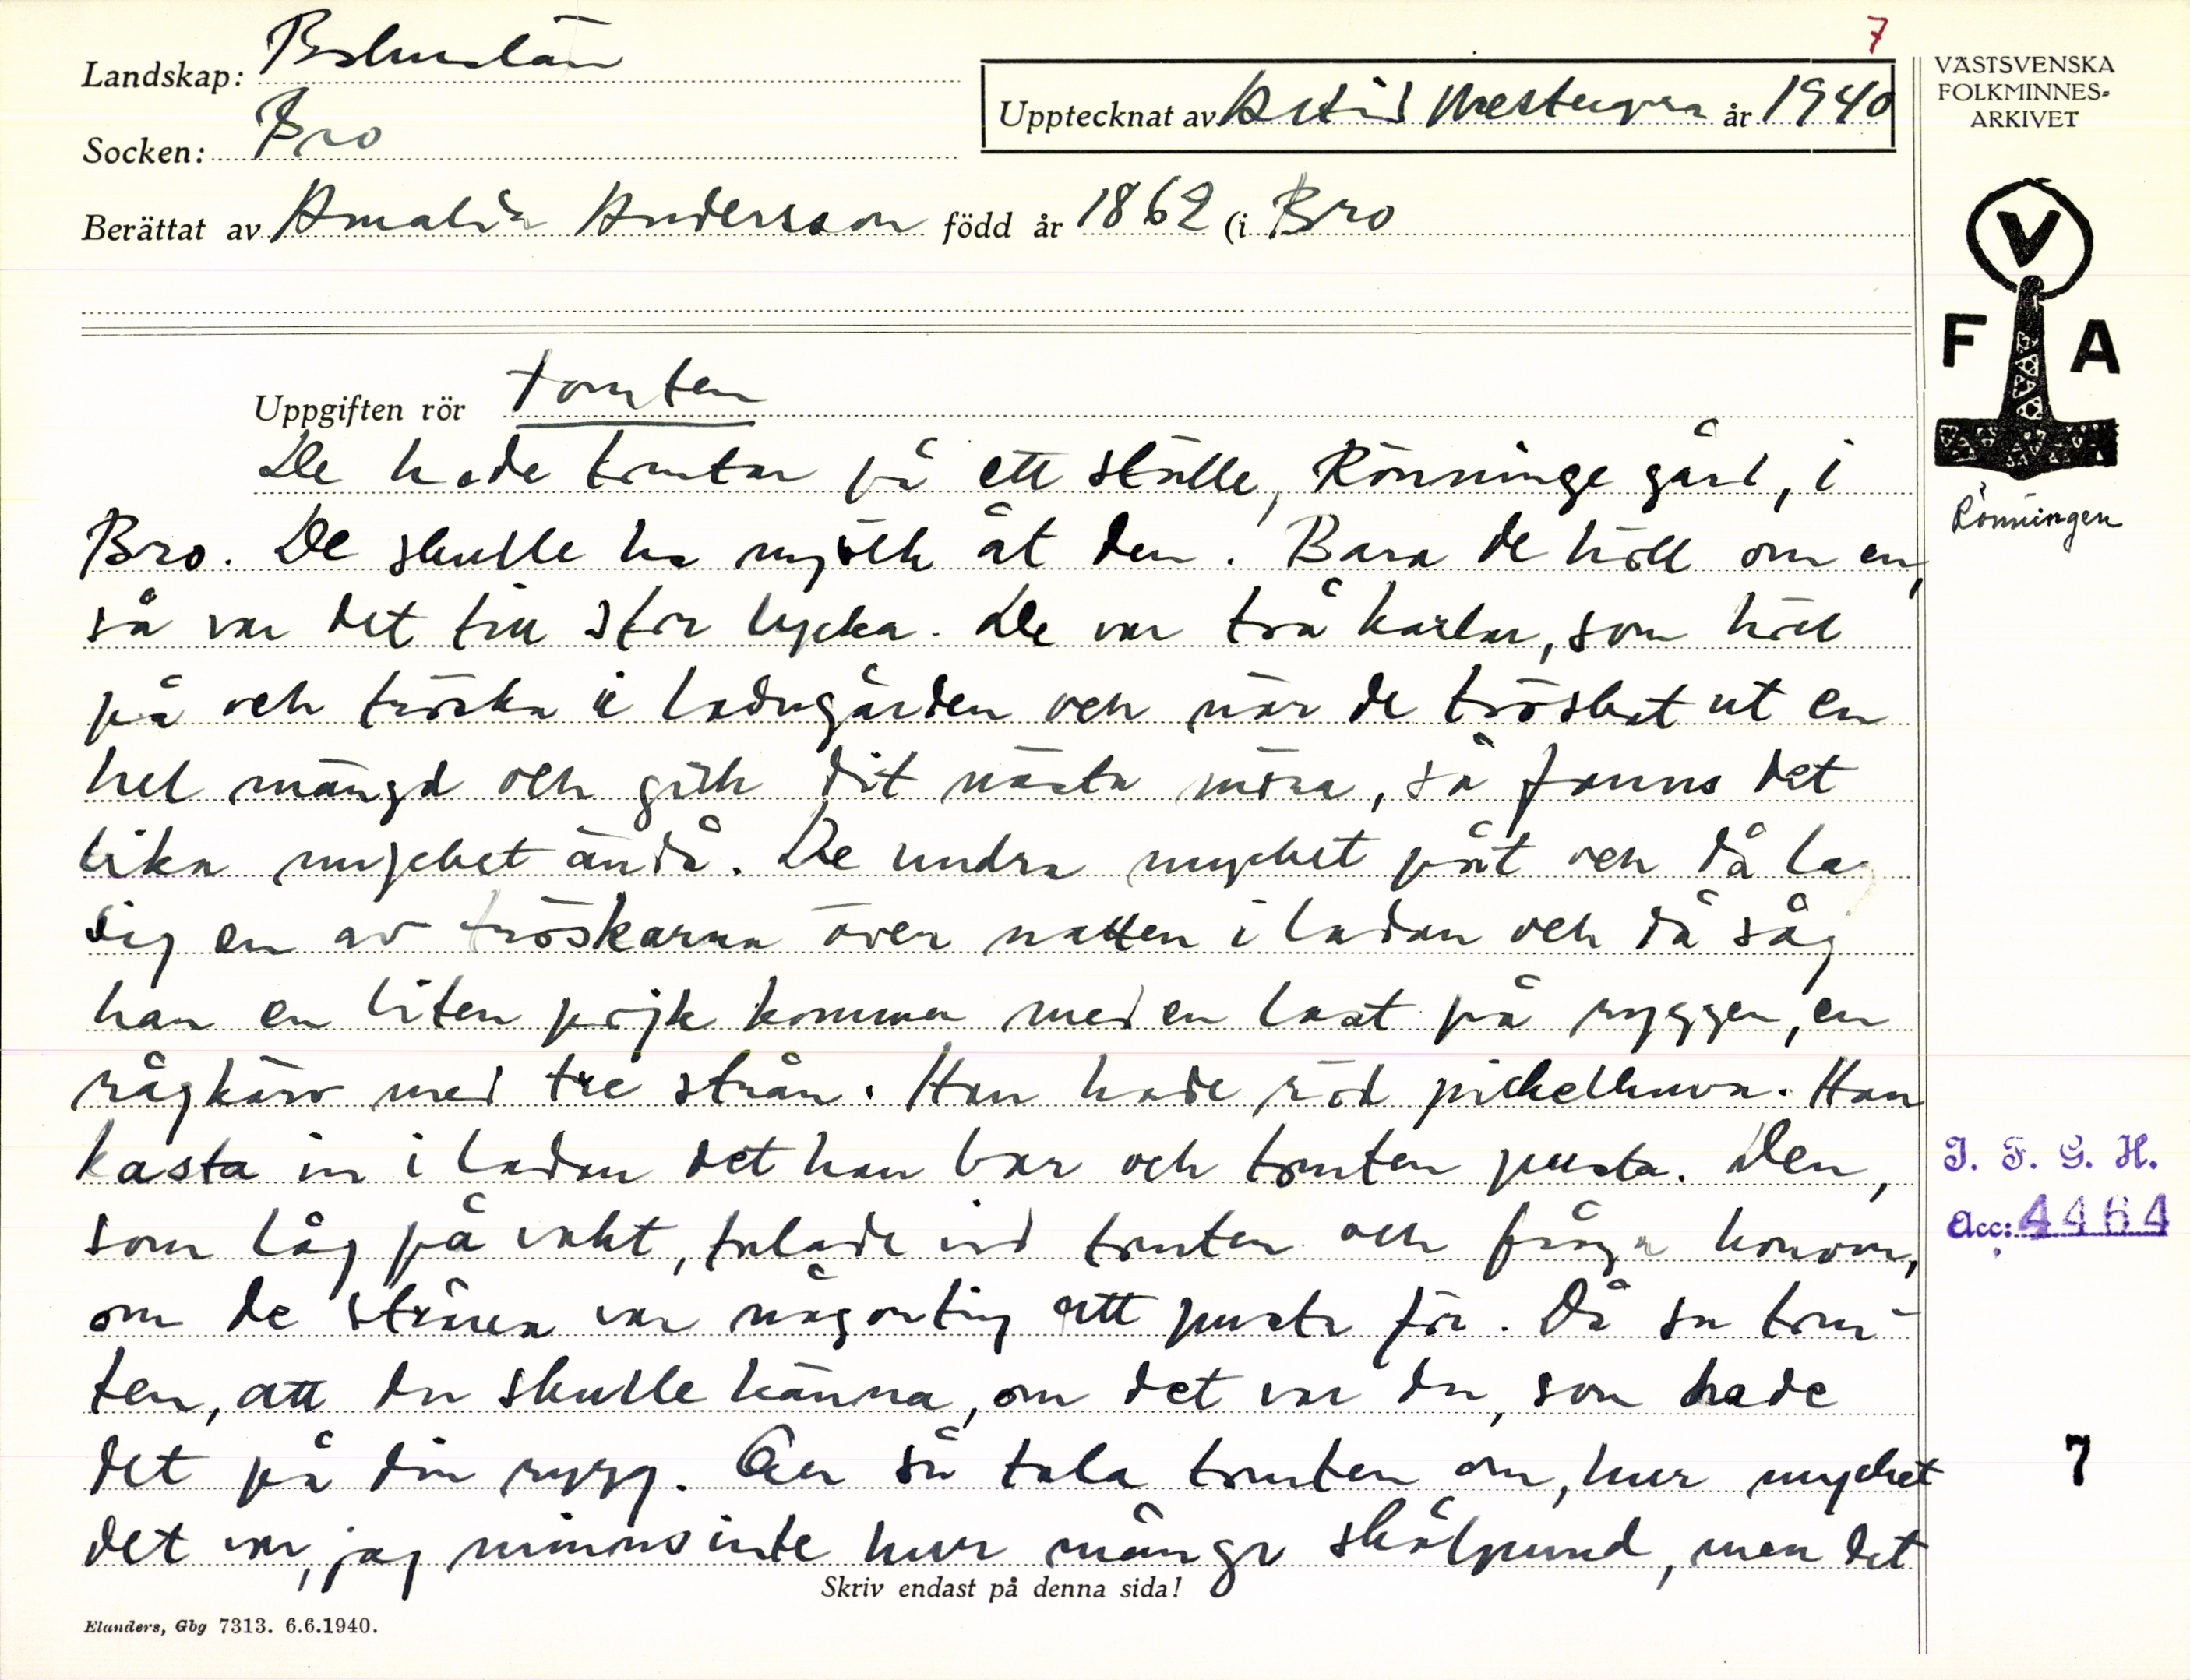 7
Landskap: Bohuslän
Socken: Bro
Upptecknat av år 1940
Berättat av Amalia Andersson född år 1862 (i Bro
VÄSTSVENSKA
FOLKMINNES-
ARKIVET
V
F A
Rönningen
Uppgiften rör tomten
De hade tomtar på ett ställe, Rönninge gård, i
Bro. De skulle ha mjölk åt den. Bara de höll om en,
så var det till stor lycka. De var två karlar, som höll
på och tröska i ladugården och när de tröskat ut en
hel mängd och gick dit nästa möra, så fanns det
lika mycket ändå. De undra mycket påt och då la
sig en av tröskarna över natten i ladan och då såg
han en liten pojk komma med en last på ryggen, en
rågkärv med tre strån. Han hade röd pickelhuva. Han
kasta in i ladan det han bar och tomten pusta. Den,
som låg på vakt, talade vid tomten och fråga honom,
om de stråen var någonting att pusta för. Då sa tom-
ten, att du skulle känna, om det var du, som hade
det på din rygg. Och så tala tomten om, hur mycket
det var, jag minns inte hur många skålpund, men det
J. F. G. H.
Acc: 4464
7
Skriv endast på denna sida!
Elanders, Gbg 7313. 6.6.1940.